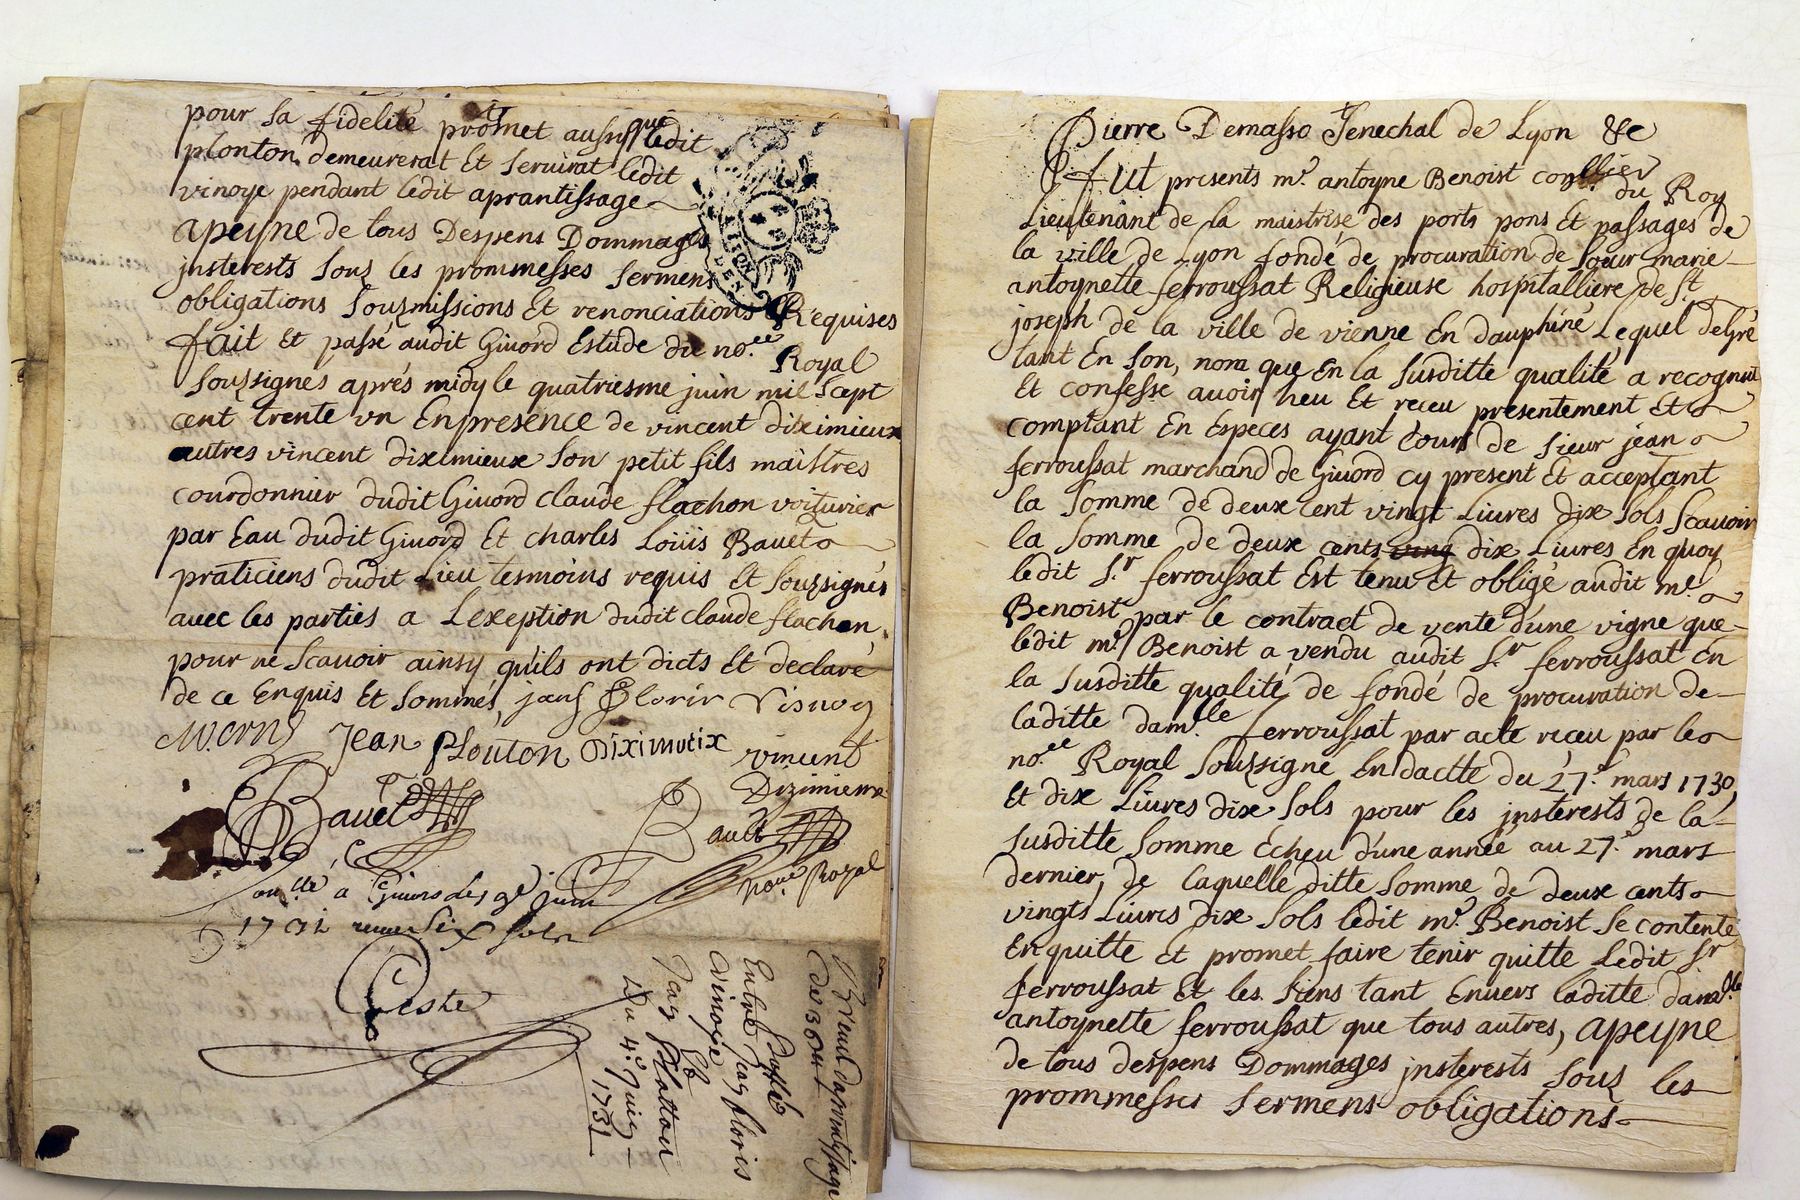 pour sa fidelité promet aussy que ledit
plonton demeurerat Et seruirat ledit
vinoye pendant ledit aprantissage
apeyne de tous Despens Dommages
jnsterests sous les prommesses sermens
obligations sousmissions Et renonciations Requises
fait Et passé audit Giuord Estude du no.re Royal
soussignes aprés midy le quatriesme juin mil sept
cent trente vn En presence de vincent diximieux
autres vincent diximieux son petit fils maistres
courdonnier dudit Giuord claude flachon voiturier
par Eau dudit Giuord Et charles Loüis Bauet
praticiens dudit Lieu tesmoins requis Et soussignés
auec les parties a Lexeption dudit claude flachon
pour ne scauoir ainsy quils ont dicts Et declaré
de ce Enquis Et sommés, jans
Jean Plouton Diximieix vincent
Diximieux
Bauet
Bault
no.re Royal
con.lle a Giuors les 9e juin
1731 six sols
Ceste
LYON
Breuil daprintissage
de 30#
Entre
vinoye
Et
Plattou
Du 4.e Juin
1731
Pierre Demasso Senechal de Lyon &c
fut presents m.e antoyne Benoist con.llier du Roy
Lieutenant de la maistrise des ports pons Et passages de
la ville de Lyon fondé de procuration de soeur marie
antoynette ferroussat Religieuse hospitalliere de st
joseph de la ville de vienne En dauphiné Lequel de Gré
tant En son, nom que En la susditte qualité a recognut
Et confesse auoir heu Et receu presentement Et
comptant En Especes ayant cours de sieur jean
ferroussat marchand de Giuord cy present Et acceptant
la somme de deux cent vingt Liures dix sols scauoir
la somme de deux cents ving dix Liures En quoy
ledit s.r ferroussat Est tenu Et obligé audit m.e
Benoist par le contract de vente d'une vigne que
ledit m.e Benoist a vendu audit s.r ferroussat En
la susditte qualité de fondé de procuration de
laditte dam.lle ferroussat par acte receu par le
no.re Royal soussigne En dactte du 27.e mars 1730,
Et dix Liures dix sols pour les jnsterests de la
susditte somme Echeu d'une année au 27.e mars
dernier, de laquelle ditte somme de deux cents
vingts Liures dix sols ledit m.e Benoist se contente
En quitte Et promet faire tenir quitte Ledit sr
ferroussat Et les siens tant Enuers laditte dam.lle
antoynette ferroussat que tous autres, apeyne
de tous despens Dommages jnsterests sous les
prommesses sermens obligations